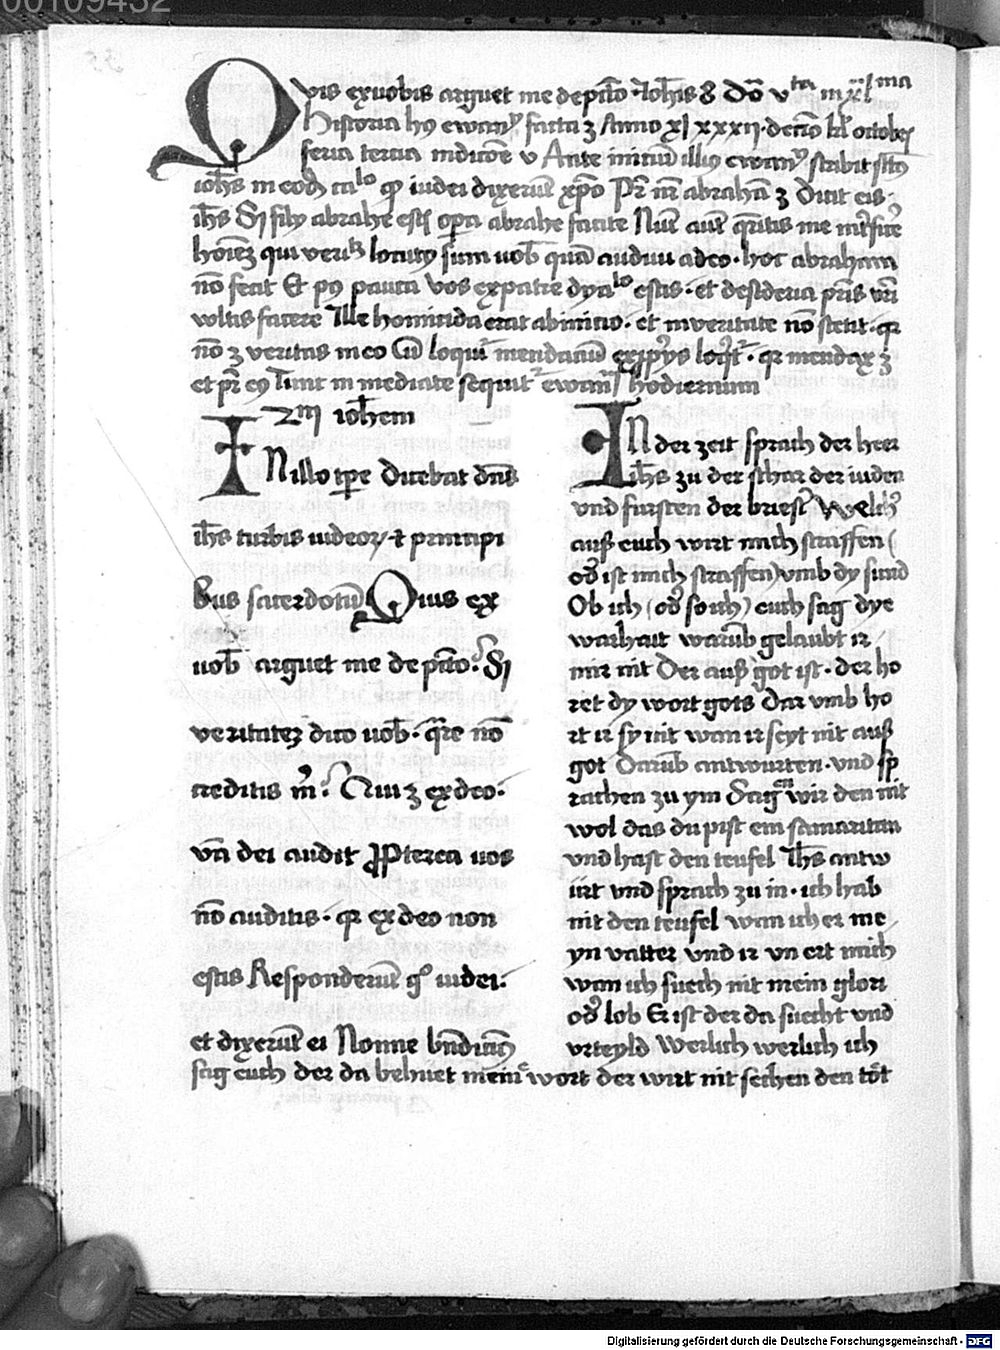 00109432
Quis ex vobis arguet me de pcco Johis 8 Do vta in xlma
Historia hq ewangy facta ꝫ Anno xl xxxij decio kl octobr
feria tercia indicoe v Ante initiu illiq ewangy scribit sctq
iohes in eod ca.lo qp iudei dixerut xpo Pr nr abraha ꝫ Dicit eis
ihs Si fily abrahe estis opa abrahe facite Nuc aute qritis me intficere
hoiez qui veritate locutq sum vob qua audiui a deo . hoc abraham
no fecit Et pq pauca Vos ex patre dyalo estis . et desideria pris vri
vultis facere Ille homicida erat ab inicio . et in veritate no stetit . qr
no ꝫ veritas in eo Cu loquitr mendaciu ex pprys loqtr . qr mendax ꝫ
et pr eq Tunc in mediate sequitr ewangm hodiernum
Zm iohem
In illo tpe Dicebat dns
ihs turbis iudeorꝝ et principi
bus sacerdotu Quis ex
vob arguet me de pcco . Si
veritatez dico vob . qre no
creditis m . Qui ꝫ ex deo .
va dei audit Propterea vos
no auditis . qr ex deo non
estis Responderut go iudei .
et dixerut ei Nonne bndicimq
In der zeit sprach der herr
ihs zu der schar der iuden
vnd fursten der briestr Welchr
auß euch wirt mich straffen (
odr ist mich straffen) vmb dy sund
Ob ich (odr so ich) euch sag dye
warhait warub gelaubt ir
mir nit Der auß got ist . der ho
ret dy wort gots Dar vmb ho
rt ir sy nit wan ir seyt nit auß
got Darub antwurten . vnd sp
rachen zu ym Sag wir den nit
wol das du pist ein samaritan
vnd hast den teufel Ihs antw
urt vnd sprach zu in . ich hab
nit den teufel wan ich er me
yn vatter vnd ir vn ert mich
wan ich suech nit mein glori
odr lob Er ist der da suecht vnd
vrteyld Werlich werlich ich
sag euch der da behuet meine wort der wirt nit sechen den tot
Digitalisierung gefördert durch die Deutsche Forschungsgemeinschaft - DFG